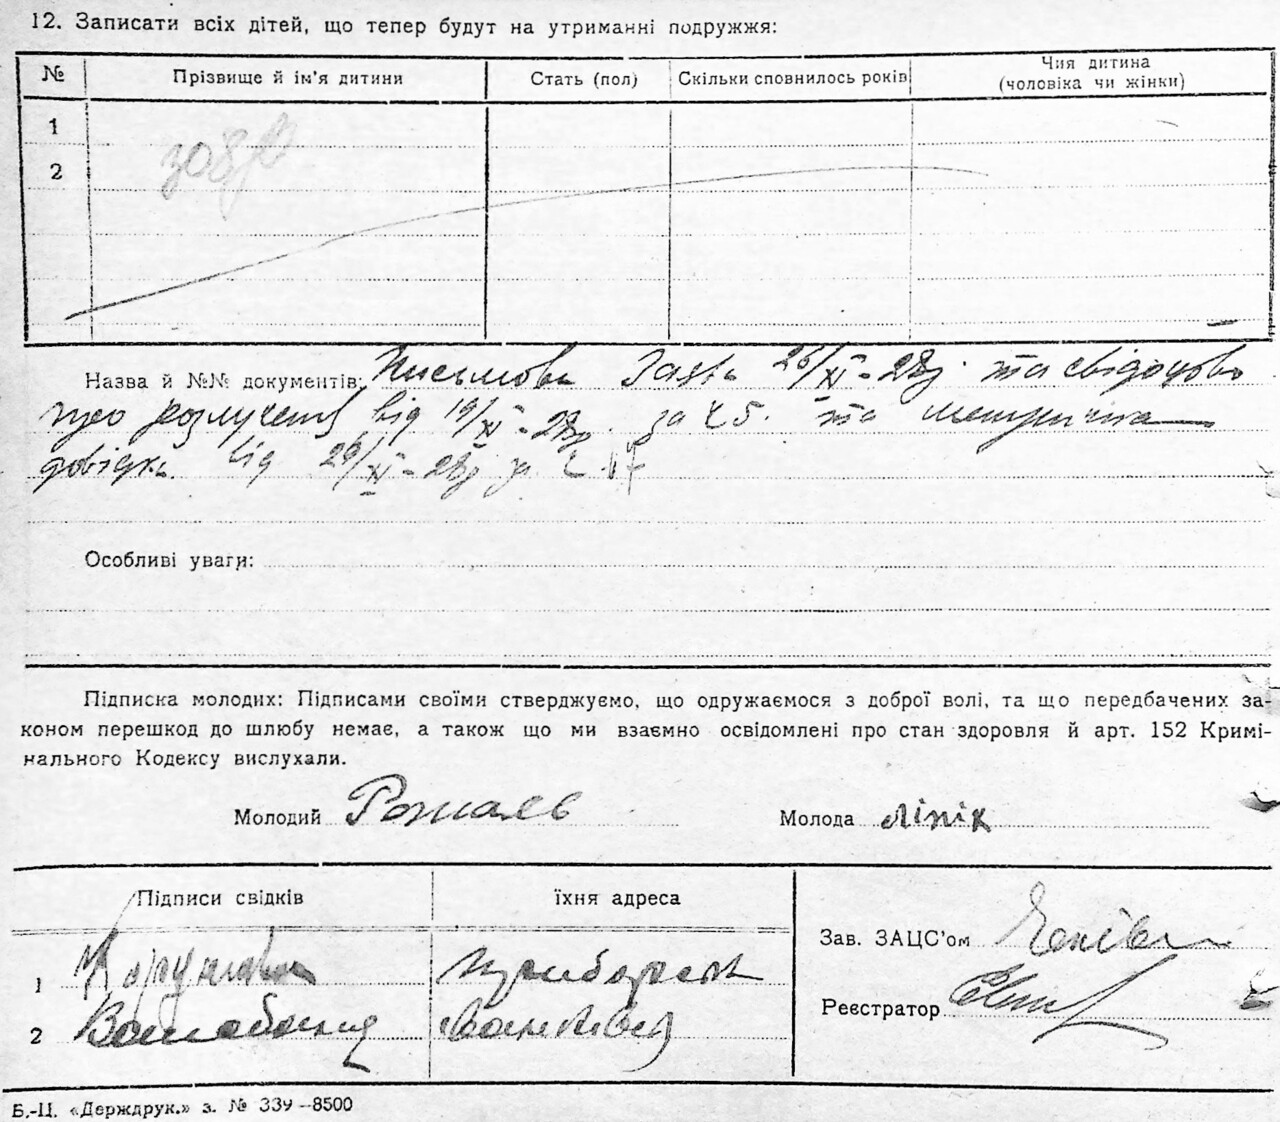 12. Записати всіх дітей, що тепер будут на утриманні подружжя:
№ Прізвище й ім'я дитини Стать (пол) Скільки сповнилось років Чия дитина (чоловіка чи жінки)
1
2
Назва й №№ документів: Письмова 26/XI-28р. та свідоцтво
про розлучення від 19/XI-28р. за ч 5. та метрична
довідка від 26/XI-28р за ч
Особливі уваги:
Підписка молодих: Підписами своїми стверджуємо, що одружаємося з доброї волі, та що передбачених за-
коном перешкод до шлюбу немає, а також що ми взаємно освідомлені про стан здоровля й арт. 152 Кримі-
нального Кодексу вислухали.
Молодий Молода Ліпік
Підписи свідків їхня адреса
Зав. ЗАЦС'ом
1
Реєстратор
2
Б.-Ц. «Держдрук.» з. № 339—8500